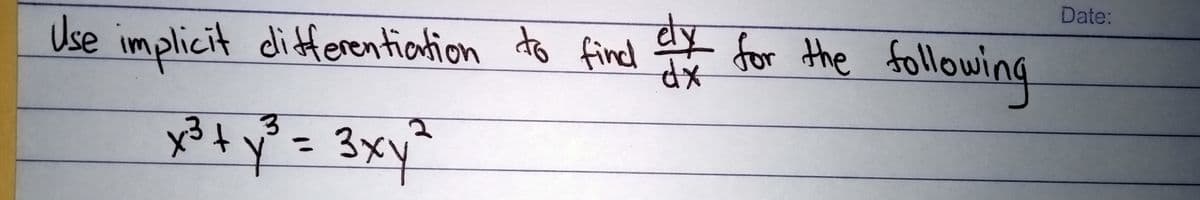 Date:
Use implicit differentiation to find dy/dx for the following
x³ + y³ = 3xy²